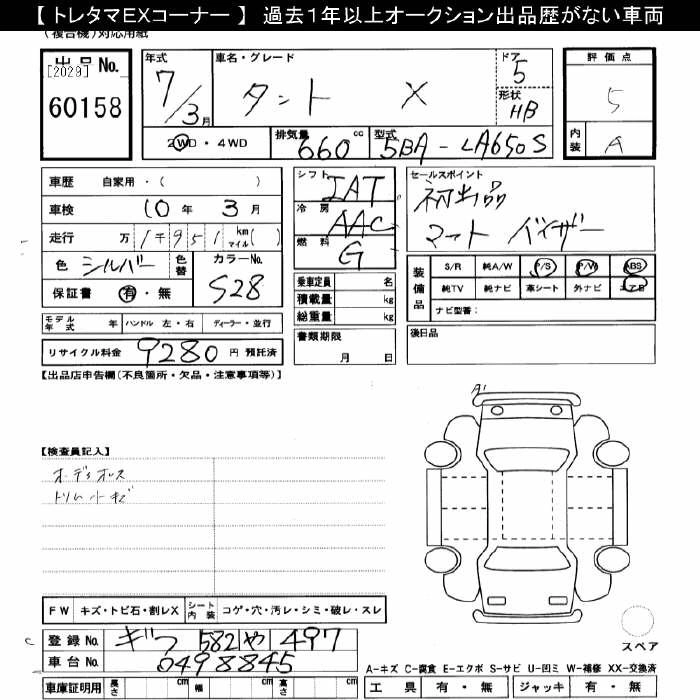 【 トレタマEXコーナー 】 過去１年以上オークション出品歴がない車両
(複合機)対応用紙
出品No.
[2029]
60158
年式
7/3月
車名・グレード
タント X
ドア
5
形状
HB
2WD・4WD
排気量 660 cc
型式 5BA-LA650S
評価点
5
内装
A
車歴 自家用・( )
車検 10年 3月
走行 万 1千951 km マイル( )
色 シルバー 色替 カラーNo. S28
保証書 有・無
モデル年式 年 ハンドル 左・右 ディーラー・並行
リサイクル料金 9280 円 預託済
シフト IAT
冷房 AAC
燃料 G
乗車定員 名
積載量 kg
総重量 kg
書類期限
月 日
セールスポイント
初出品
マット バイザー
装備品
S/R 純A/W P/S P/W ABS
純TV 純ナビ 革シート 外ナビ エアB
ナビ型番:
後日品
【出品店申告欄(不良箇所・欠品・注意事項等)】
【検査員記入】
オーディオレス
トリム小キズ
A1
スペア
FW キズ・トビ石・割レX シート内装 コゲ・穴・汚レ・シミ・破レ・スレ
登録No. ギフ 582 や 497
車台No. 0498845
車庫証明用 長さ cm 幅 cm 高さ cm
A-キズ C-腐食 E-エクボ S-サビ U-凹ミ W-補修 XX-交換済
工具 有・無 ジャッキ 有・無